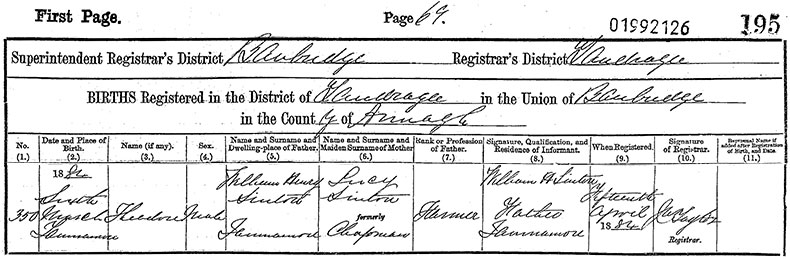 First Page. Page 69. 01992126 195
Superintendent Registrar's District Banbridge Registrar's District Tandragee
BIRTHS Registered in the District of Tandragee in the Union of Banbridge
in the County of Armagh
No. (1.) Date and Place of Birth. (2.) Name (if any). (3.) Sex. (4.) Name and Surname and Dwelling-place of Father. (5.) Name and Surname and Maiden Surname of Mother (6.) Rank or Profession of Father. (7.) Signature, Qualification, and Residence of Informant. (8.) When Registered. (9.) Signature of Registrar. (10.) Baptismal Name if added after Registration of Birth, and Date. (11.)
1884
Sixth
350 March
Tamnamore
Theodore
Male
William Henry
Sinton
Tamnamore
Lucy
Sinton
formerly
Chapman
Farmer
William H. Sinton
Father
Tamnamore
Fifteenth
April
1884
Taylor
Registrar.